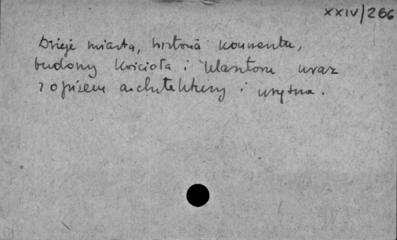 XXIV/266
Dzieje miasta, historia konwentu,
budowy kościoła i klasztoru wraz
z opisem architektury i